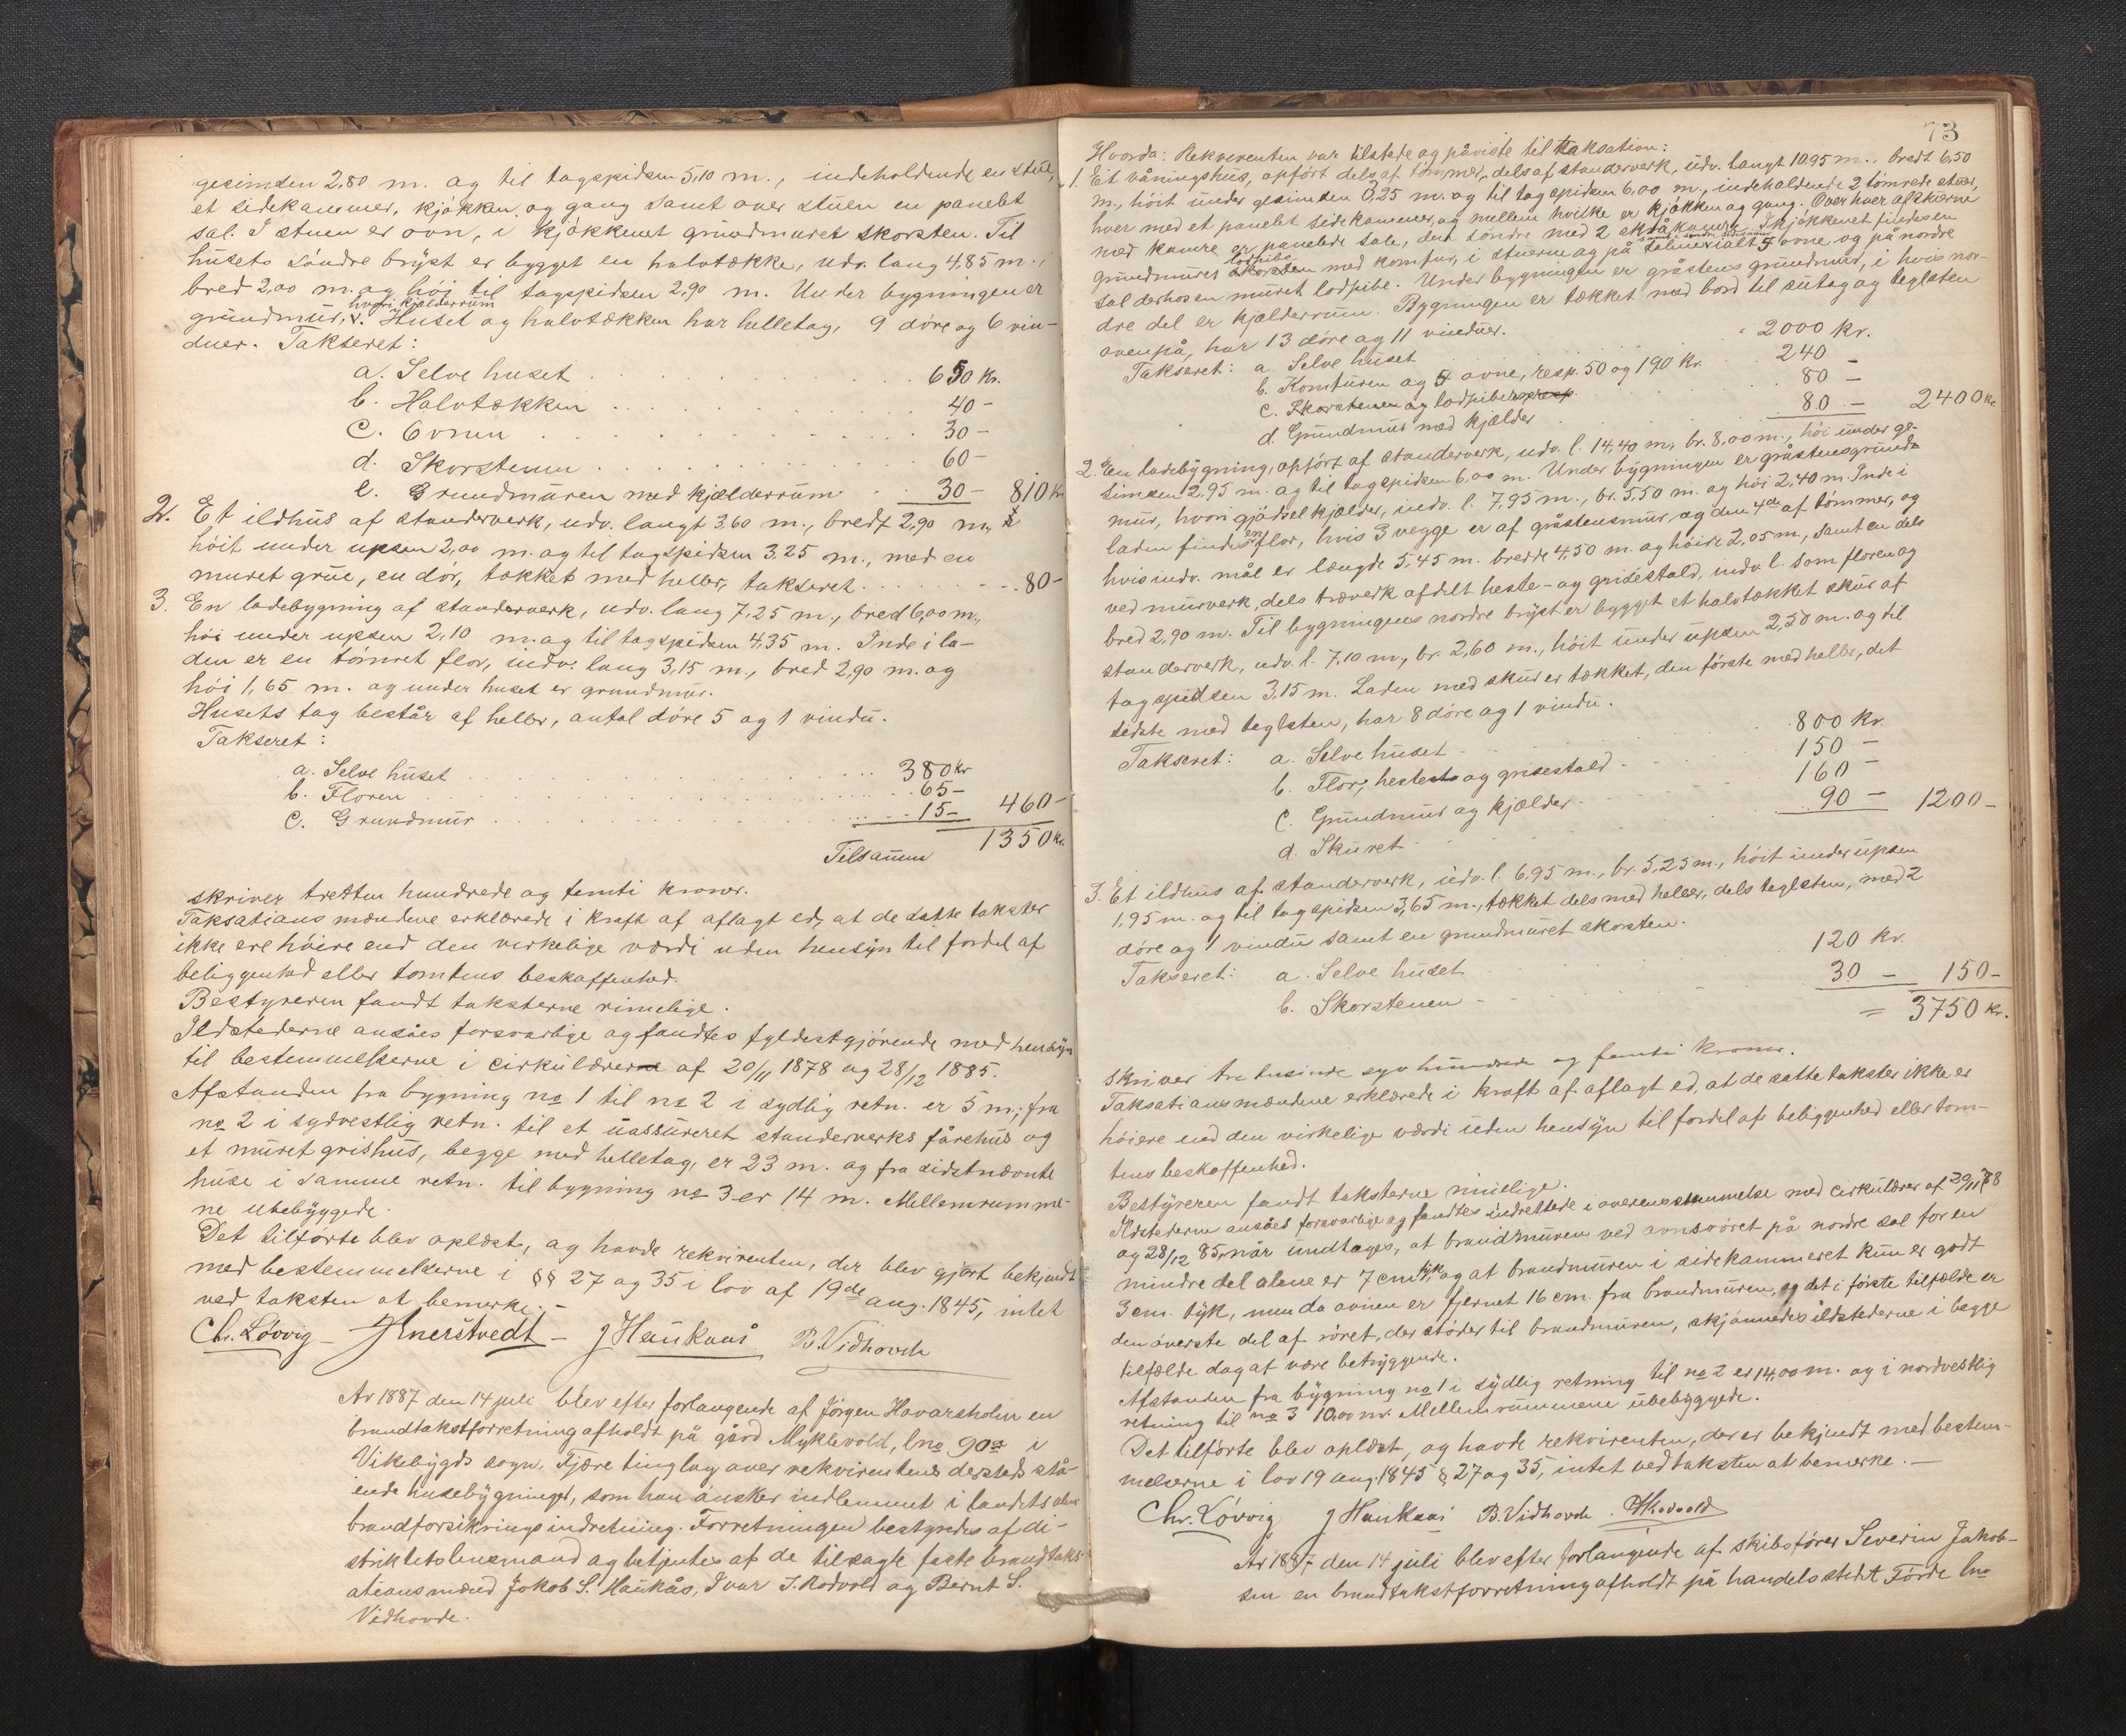 gesimsen 2,80 m. og til tagspidsen 5,10 m., indeholdende en stue,
et sidekammer, kjøkken og gang samt over stuen en panelet
sal. I stuen er ovn, i kjøkkenet grundmuret skorsten. Til
husets søndre bryst er bygget en halvtække, udv. lang 4,85 m.,
bred 2,00 m. og høi til tagspidsen 2,90 m. Under bygningen er
hvori kjælderrum
grundmur, v. Huset og halvtækken har helletag, 9 døre og 6 vin-
duer. Takseret:
a. Selve huset 650 Kr.
b. Halvtækken 40 -
c. Ovnen 30 -
d. Skorstenen 60 -
e. Grundmuren med kjælderrum 30 - 810 Kr.
2. Et ildhus af standerverk, udv. langt 3,60 m., bredt 2,90 m.,
høit under upsen 2,00 m. og til tagspidsen 3,25 m., med en
muret grue, en dør, tækket med heller, takseret 80 -
3. En ladebygning af standerverk, udv. lang 7,25 m., bred 6,00 m.,
høi under upsen 2,10 m. og til tagspidsen 4,35 m. Inde i la-
den er en tømret flor, indv. lang 3,15 m., bred 2,90 m. og
høi 1,65 m. og under huset er grundmur.
Husets tag består af heller, antal døre 5 og 1 vindu.
Takseret:
a. Selve huset 380 Kr
b. Floren 65 -
c. Grundmur 15 - 460 -
Tilsamm 1350 Kr.
skriver tretten hundrede og femti kroner.
Taksationsmændene erklærede i kraft af aflagt ed, at de satte takster
ikke ere høiere end den verkelige værdi uden hensyn til fordel af
beliggenhed eller tomtens beskaffenhed.
Bestyreren fandt taksterne rimelige.
Ildstederne ansåes forsvarlige og fandtes fyldestgjørende med hensyn
til bestemmelserne i cirkulærerne af 20/11 1878 og 28/12 1885.
Afstanden fra bygning no 1 til no 2 i sydlig retn. er 5 m.; fra
no 2 i sydvestlig retn. til et uassureret standerverks fårehus og
et muret grishus, begge med helletag, er 23 m. og fra sidstnævnte
huse i samme retn. til bygning no 3 er 14 m. Mellemrumme-
ne ubebyggede.
Det tilførte blev oplæst, og havde rekvirenten, der blev gjort bekjendt
med bestemmelserne i §§ 27 og 35 i lov af 19de aug. 1845, intet
ved taksten at bemerke. -
Chr. Løvvig - Knerstvedt - J Haukaas B. Vidhovde
Ar 1887 den 14 juli blev efter forlangende af Jørgen Havarsholm en
brandtakstforretning afholdt på gård Myklevold, lno 90a i
Vikebygds sogn, Fjære tinglag over rekvirentens dersteds stå-
ende husebygninger, som han ønsker indlemmet i landets alm.
brandforsikringsindretning. Forretningen bestyredes af di-
striktets lensmand og betjentes af de tilsagte faste brandtaks-
ationsmænd Jokob S. Haukås, Ivar I. Rodvold og Bernt S.
Vidhovde.
73
Hvorda: Rekvirenten var tilstede og påviste til taksation:
1. Et våningshus, opført dels af tømmer, dels af standerverk, udv. langt 10,95 m., bredt 6,50
m., høit under gesimsen 3,25 m. og til tagspidsen 6,00 m., indeholdende 2 tømrede stuer,
hver med et panelet sidekammer, og mellem hvilke er kjøkken og gang. Over hver af stuerne
med kamre er panelede sale, den søndre med 2 skråkamre. I kjøkkenet findes en
lodpibe
grundmuret skorsten med komfur, i stuerne og på salene ialt 5 ovne og på nordre
sal derhos en muret lodpibe. Under bygningen er gråstens grundmur, i hvis nor-
dre del er kjælderrum. Bygningen er tækket med bord til sutag og teglsten
ovenpå, har 13 døre og 11 vinduer.
Takseret: a. Selve huset 2000 Kr.
b. Komfuren og 5 ovne, resp. 50 og 190 Kr. 240 -
c. Skorstenen og lodpiben 80 -
d. Grundmur med kjælder 80 - 2400 Kr.
2. En ladebygning, opført af standerverk, udv. l. 14,40 m., br. 8,00 m., høi under ge-
simsen 2,95 m. og til tagspidsen 6,00 m. Under bygningen er gråstensgrund-
mur, hvori gjødselkjælder, indv. l. 7,95 m., br. 5,50 m. og høi 2,40 m. Inde i
laden findes en flor, hvis 3 vegge er af gråstensmur og den 4de af tømmer, og
hvis indv. mål er længde 5,45 m. bredde 4,50 m. og høide 2,05 m., samt en dels
ved murverk, dels træverk afdelt heste- og grisestald, indv. l. som floren og
bred 2,90 m. Til bygningens nordre bryst er bygget et halvtækket skur af
standerverk, udv. l. 7,10 m., br. 2,60 m., høit under upsen 2,50 m. og til
tagspidsen 3,15 m. Laden med skur er tækket, den første med heller, det
sidste med teglsten, har 8 døre og 1 vindu.
Takseret: a. Selve huset 800 Kr.
b. Flor, heste- og grisestald 150 -
c. Grundmur og kjælder 160 -
d. Skuret 90 - 1200 -
3. Et ildhus af standerverk, udv. l. 6,95 m., br. 5,25 m., høit under upsen
1,95 m. og til tagspidsen 3,65 m., tækket dels med heller, dels teglsten, med 2
døre og 1 vindu samt en grundmuret skorsten.
Takseret: a. Selve huset 120 Kr.
b. Skorstenen 30 - 150 -
= 3750 Kr.
skriver tre tusinde syv hundrede og femti kroner.
Taksationsmændene erklærede i kraft af aflagt ed, at de satte takster ikke er
høiere end den virkelige værdi uden hensyn til fordel af beliggenhed eller tom-
tens beskaffenhed.
Bestyreren fandt taksterne rimelige.
Ildstederne ansåes forsvarlige og fandtes indrettede i overensstemmelse med cirkulærer af 20/11 78
og 28/12 85, når undtages, at brandmuren ved ovnsrøret på nordre sal for en
mindre del alene er 7 cm tyk, og at brandmuren i sidekammeret kun er godt
3 cm. tyk, men da ovnen er fjernet 16 cm. fra brandmuren, og det i første tilfælde er
den øverste del af røret, der støder til brandmuren, skjønnedes ildstederne i begge
tilfælde dog at være betryggende.
Afstanden fra bygning no 1 i sydlig retning til no 2 er 14,00 m. og i nordvestlig
retning til no 3 10,00 m. Mellemrummene ubebyggede.
Det tilførte blev oplæst, og havde rekvirenten, der er bekjendt med bestem-
melserne i lov 19 aug. 1845 § 27 og 35, intet ved taksten at bemerke. -
Chr. Løvvig J Haukaas B. Vidhovde. I I Rodvold
Ar 1887 den 14 juli blev efter forlangende af skibsfører Severin Jakob-
sen en brandtakstforretning afholdt på handelsstedet Førde lno